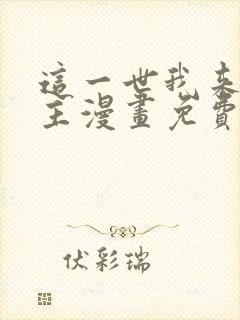 這一世我来
主漫畫免費
伏彩瑞